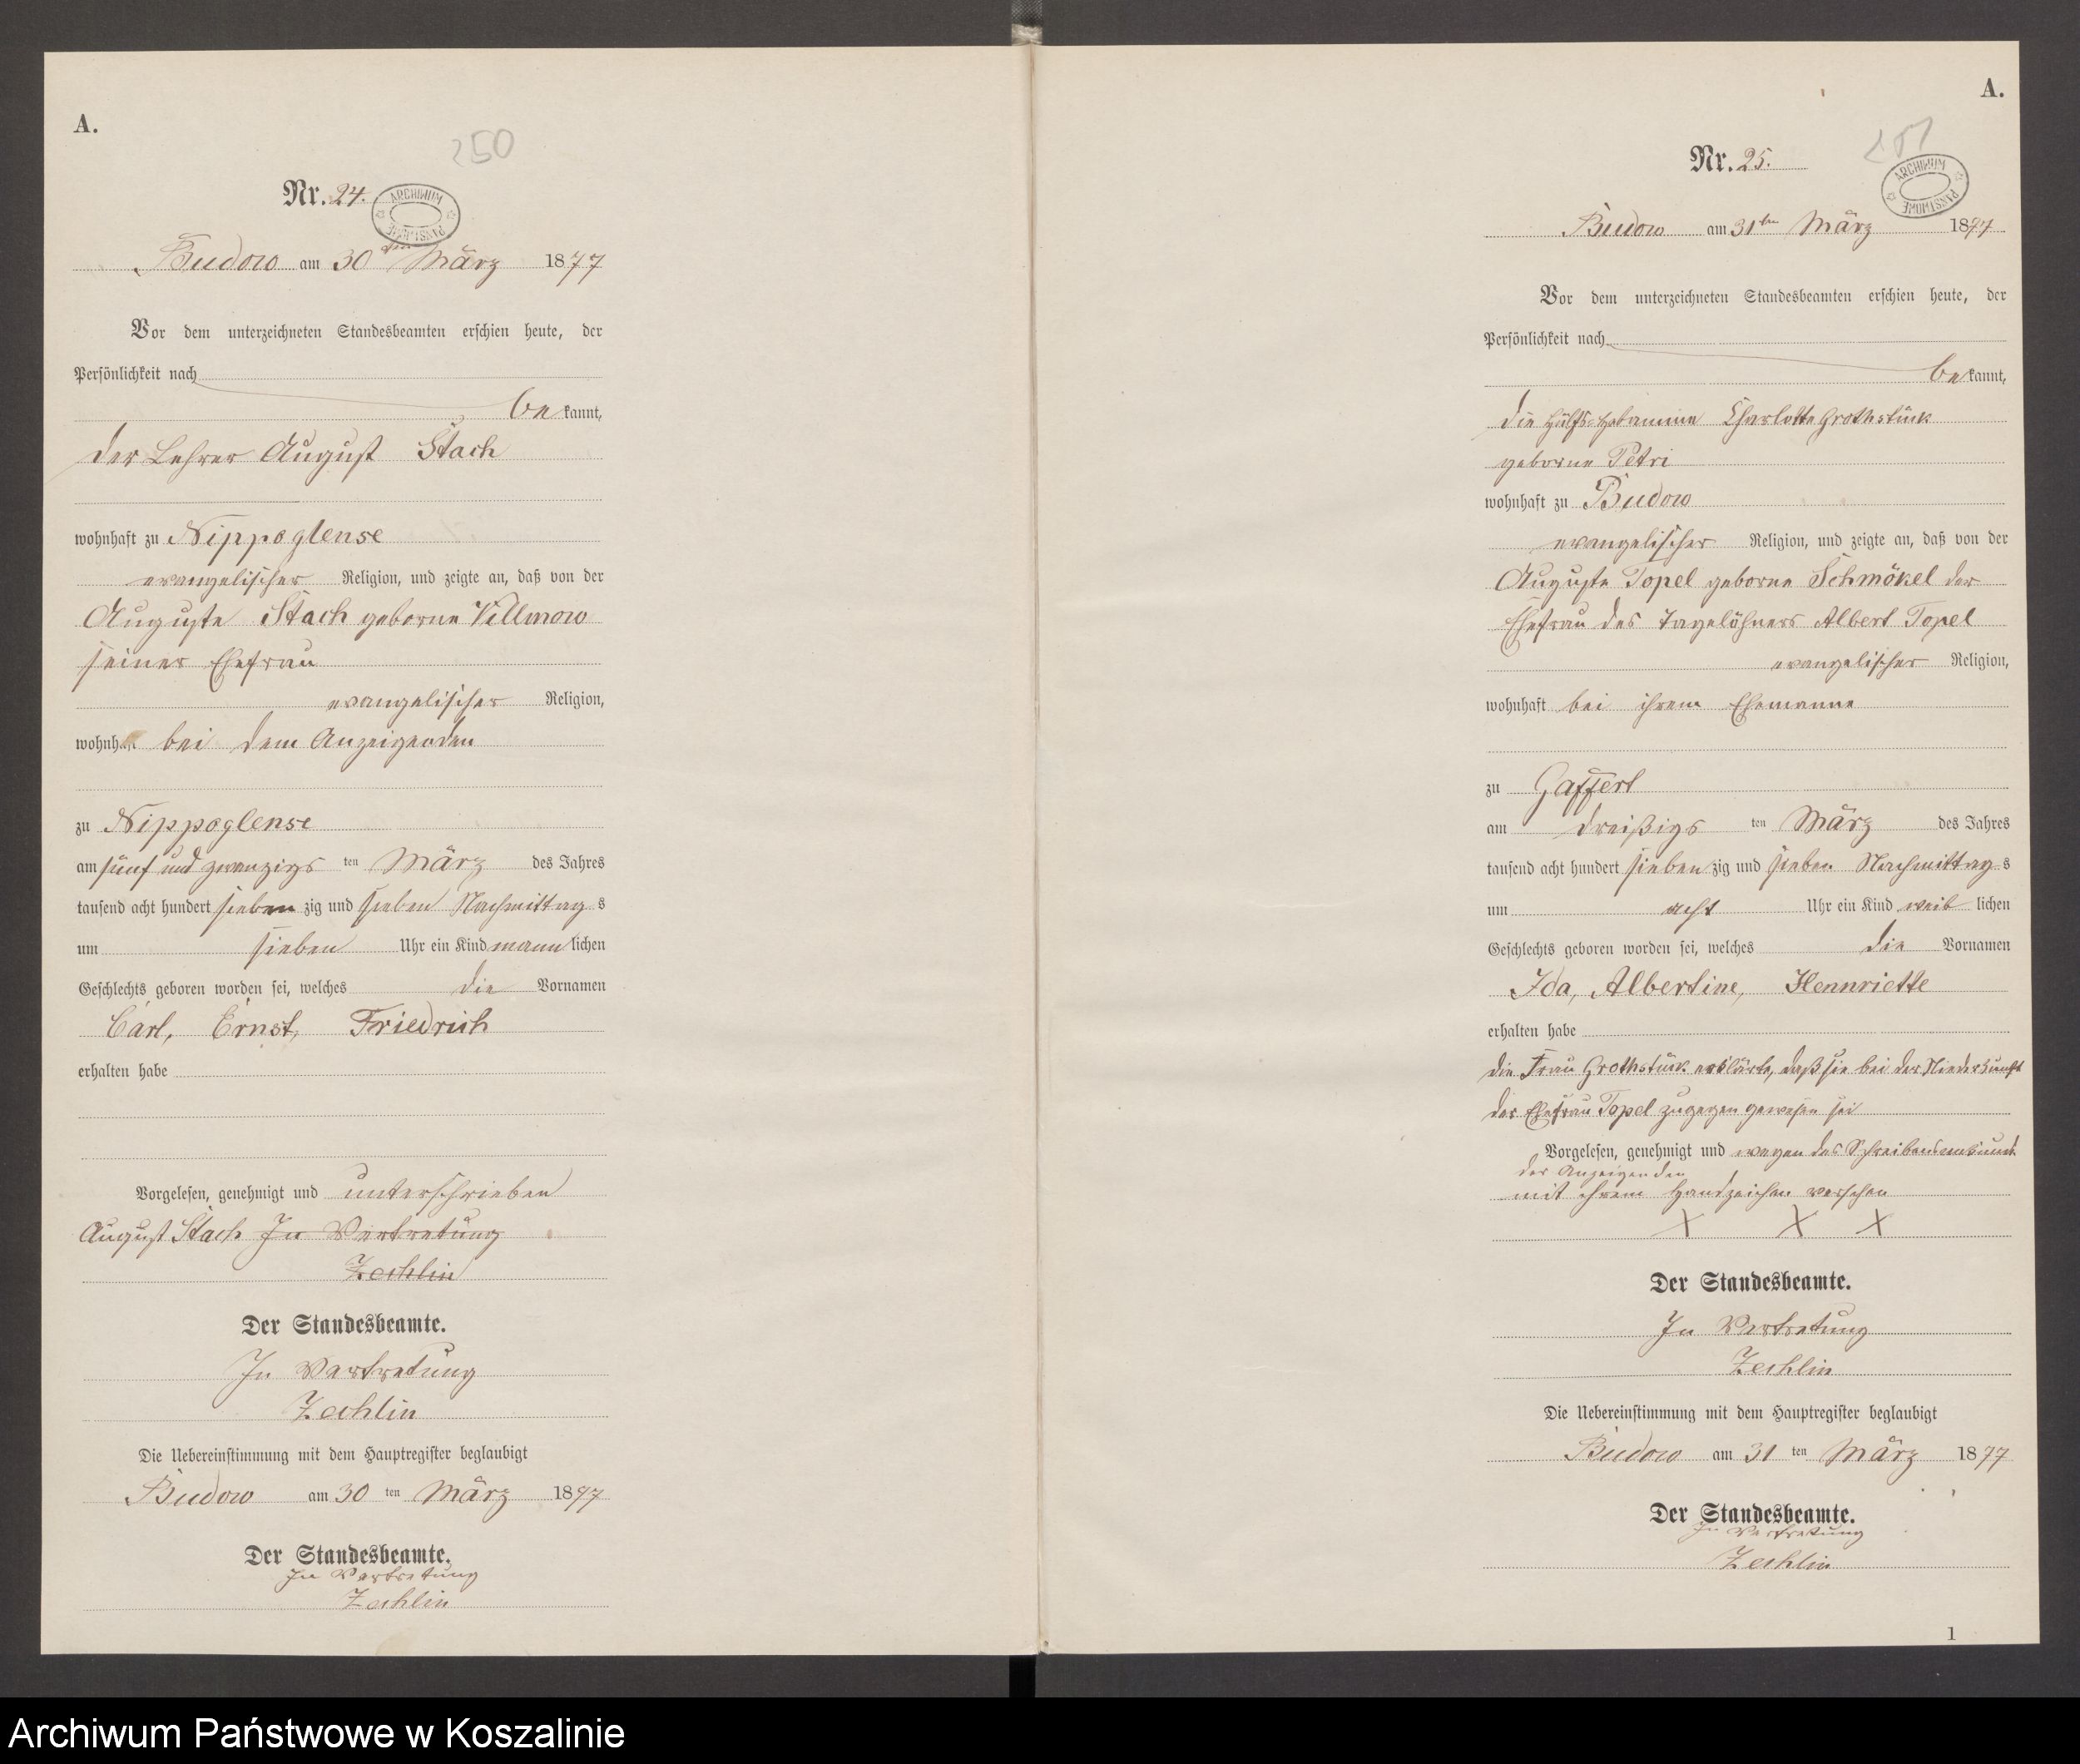 A.
250
Nr. 24.
ARCHIWUM PAŃSTWOWE
Budow am 30ten März 1877
Vor dem unterzeichneten Standesbeamten erschien heute, der
Persönlichkeit nach
be kannt,
der Lehrer August Stach
wohnhaft zu Nippoglense
evangelischer Religion, und zeigte an, daß von der
Auguste Stach geborne Villmow
seiner Ehefrau
evangelischer Religion,
wohnhaft bei dem Anzeigenden
zu Nippoglense
am fünf und zwanzigs ten März des Jahres
tausend acht hundert sieben zig und sieben Nachmittag s
um sieben Uhr ein Kind mann lichen
Geschlechts geboren worden sei, welches die Vornamen
Carl, Ernst, Friedrich
erhalten habe
Vorgelesen, genehmigt und unterschrieben
August Stach In Vertretung
Zechlin
Der Standesbeamte.
In Vertretung
Zechlin
Die Uebereinstimmung mit dem Hauptregister beglaubigt
Budow am 30 ten März 1877
Der Standesbeamte.
In Vertretung
Zechlin
A.
251
Nr. 25.
ARCHIWUM PAŃSTWOWE
Budow am 31ten März 1877
Vor dem unterzeichneten Standesbeamten erschien heute, der
Persönlichkeit nach
be kannt,
die Hülfs-Hebamme Charlotte Grothstück
geborne Petri
wohnhaft zu Budow
evangelischer Religion, und zeigte an, daß von der
Auguste Topel geborne Schmökel der
Ehefrau des Tagelöhners Albert Topel
evangelischer Religion,
wohnhaft bei ihrem Ehemanne
zu Gaffert
am dreißigs ten März des Jahres
tausend acht hundert sieben zig und sieben Nachmittag s
um acht Uhr ein Kind weib lichen
Geschlechts geboren worden sei, welches die Vornamen
Ida, Albertine, Hennriette
erhalten habe
die Frau Grothstück erklärte, daß sie bei der Niederkunft
der Ehefrau Topel zugegen gewesen sei
Vorgelesen, genehmigt und wegen des Schreibens
der Anzeigenden
mit ihrem Handzeichen versehen
X X X
Der Standesbeamte.
In Vertretung
Zechlin
Die Uebereinstimmung mit dem Hauptregister beglaubigt
Budow am 31 ten März 1877
Der Standesbeamte.
In Vertretung
Zechlin
1
Archiwum Państwowe w Koszalinie